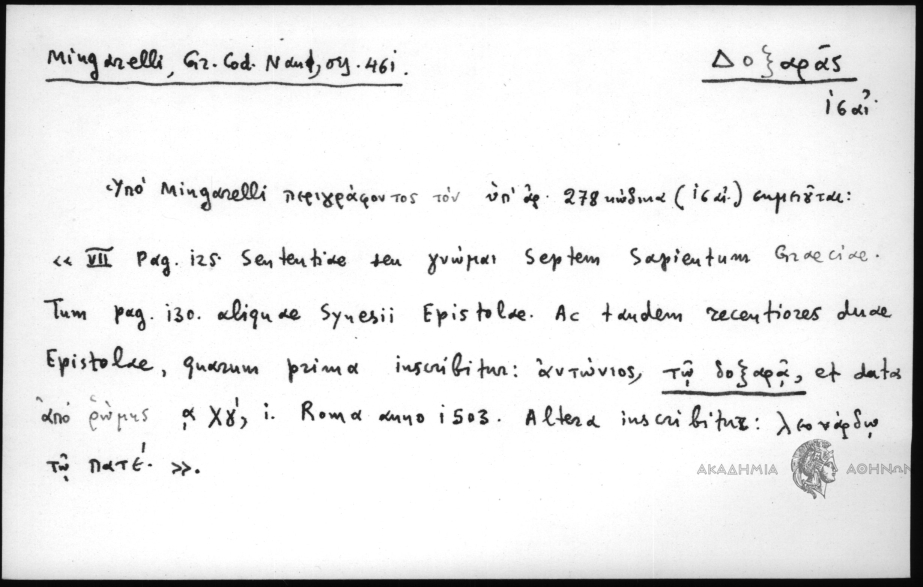 Mingarelli, Gr. Cod. Nani, σχ. 461.
Δοξαρᾶς
ις αἰ.
Ὑπό Mingarelli περιγράφοντος τόν ὑπ' ἀρ. 278 κώδικα (ις αἰ.) σημειοῦται:
« VII Pag. 125. Sententiae seu γνώμαι Septem Sapientum Graeciae.
Tum pag. 130. aliquae Synesii Epistolae. Ac tandem recentiores duae
Epistolae, quarum prima inscribitur: ἀντώνιος, τῷ δοξαρᾷ, et data
ἀπό ῥώμης αχγ', i. Roma anno 1503. Altera inscribitur: λεονάρδῳ
τῷ πατέ. ».
ΑΚΑΔΗΜΙΑ ΑΘΗΝΩΝ